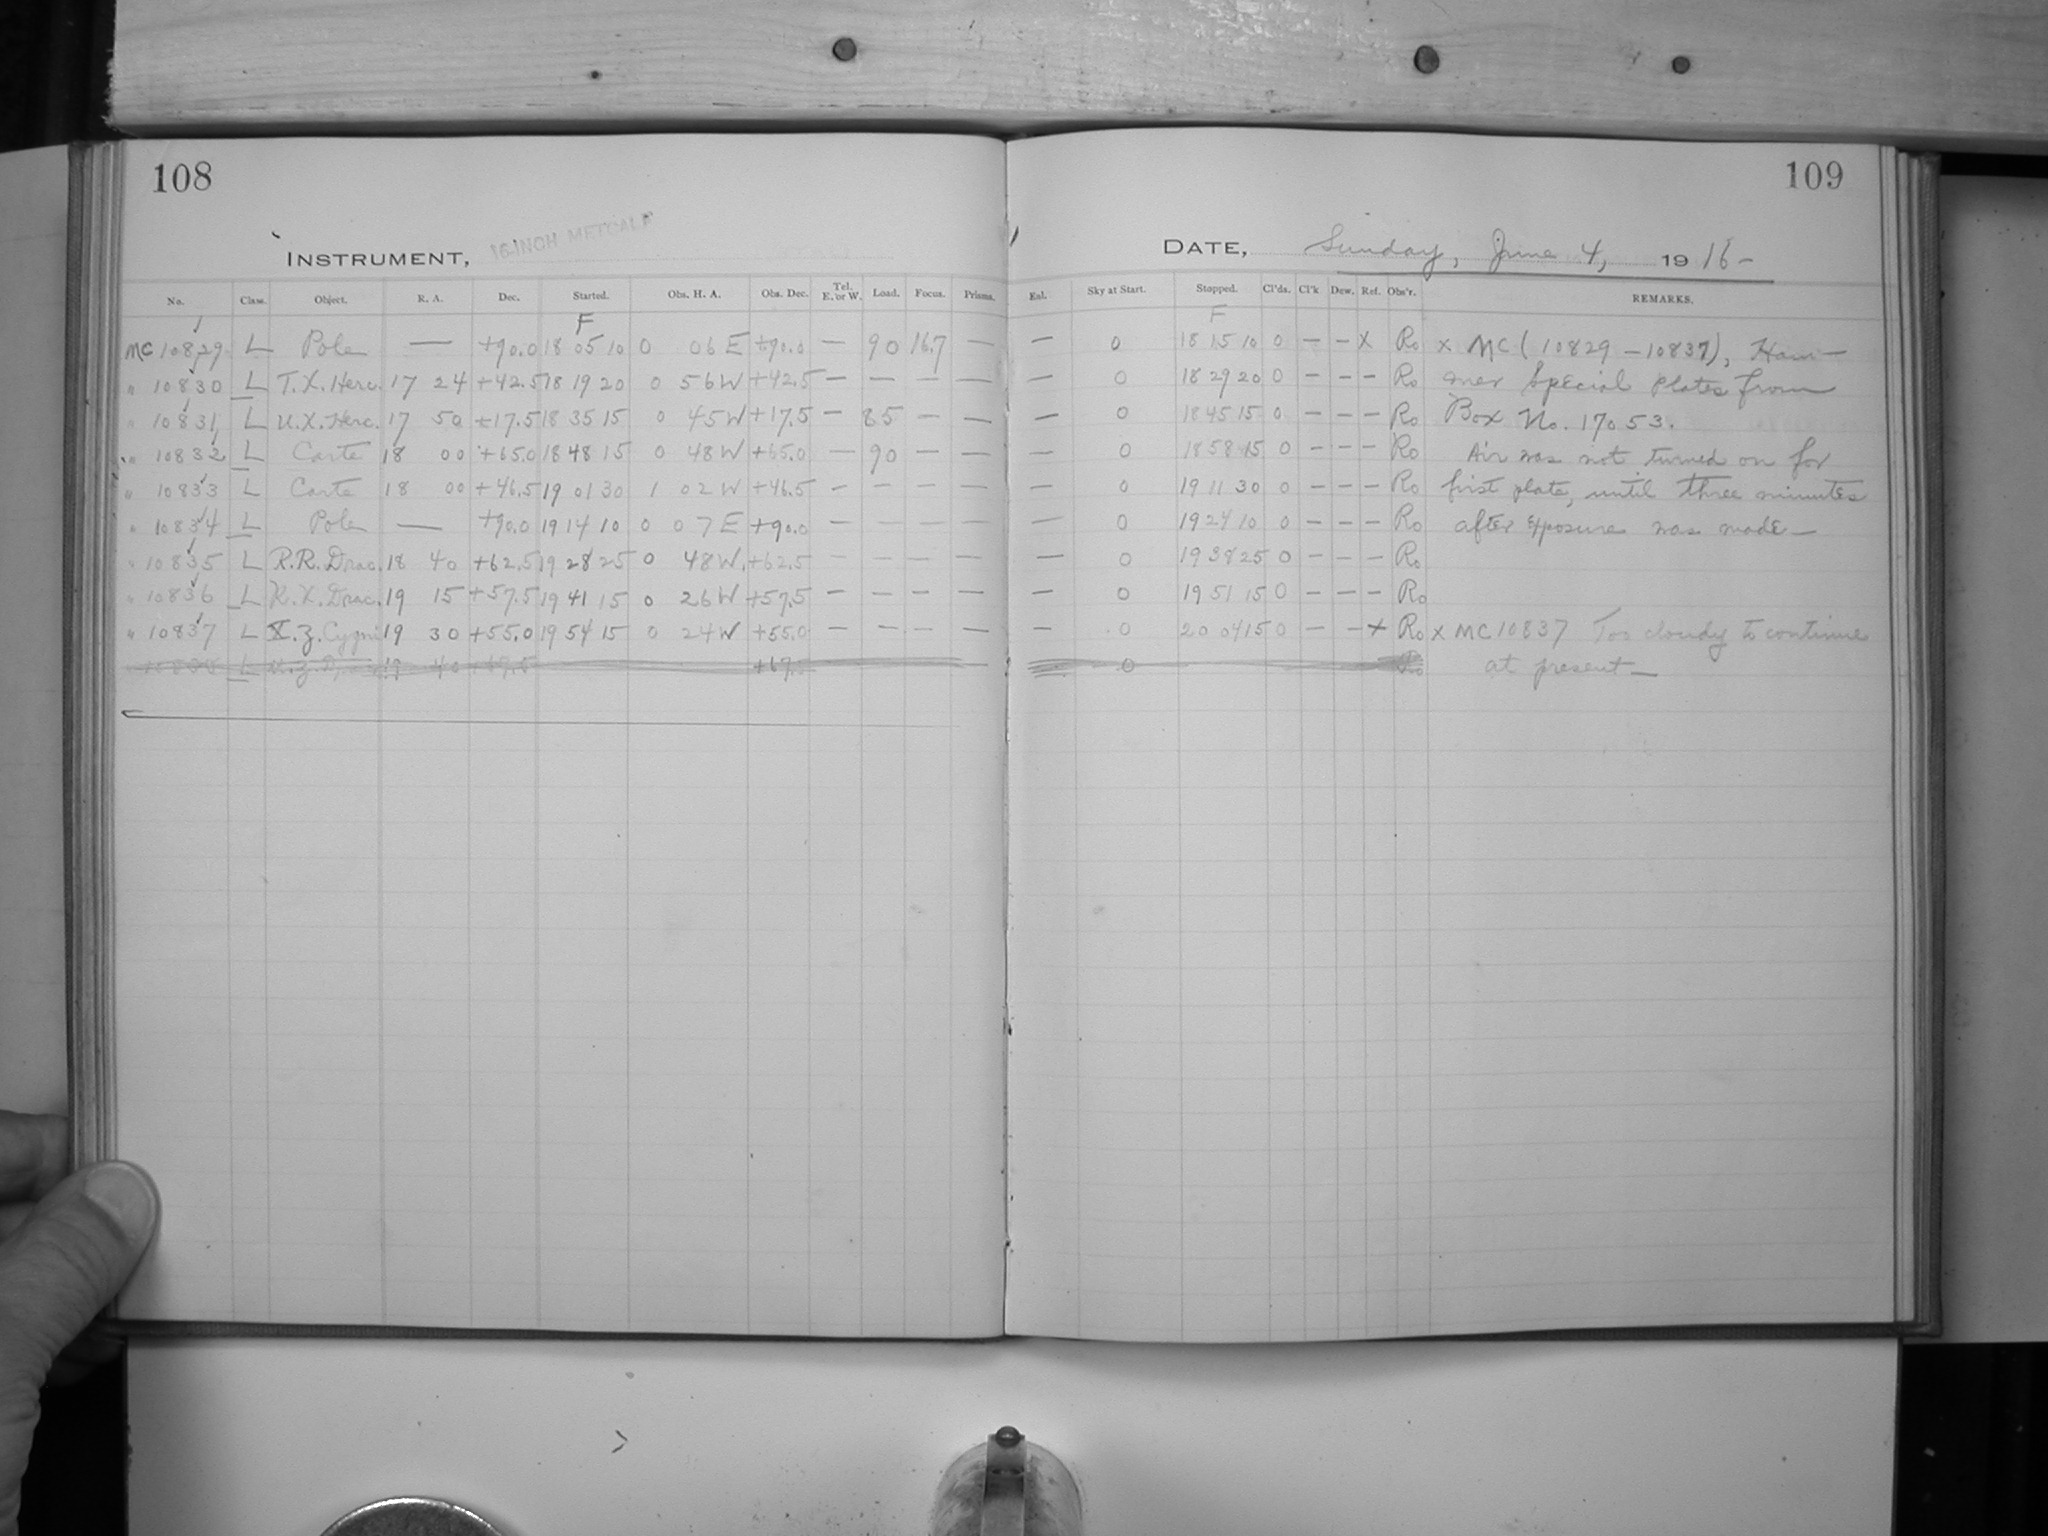 108
INSTRUMENT, 16-INCH METCALF
No. Class. Object. R. A. Dec. Started. Obs. H. A. Obs. Dec. Tel. E. or W. Load. Focus. Prisms.
F
MC 10829 L Pole — +90.0 18 05 10 0 06 E +90.0 — 90 16.7 —
" 10830 L T.X. Herc. 17 24 +42.5 18 19 20 0 56 W +42.5 — — — —
" 10831 L U.X. Herc. 17 50 +17.5 18 35 15 0 45 W +17.5 — 85 — —
" 10832 L Carte 18 00 +65.0 18 48 15 0 48 W +65.0 — 90 — —
" 10833 L Carte 18 00 +46.5 19 01 30 1 02 W +46.5 — — — —
" 10834 L Pole — +90.0 19 14 10 0 07 E +90.0 — — — —
" 10835 L R.R. Drac. 18 40 +62.5 19 28 25 0 48 W. +62.5 — — — —
" 10836 L R.X. Drac. 19 15 +57.5 19 41 15 0 26 W +57.5 — — — —
" 10837 L Z. Cygni 19 30 +55.0 19 54 15 0 24 W +55.0 — — — —
L 19 40 +67.5 —
109
DATE, Sunday, June 4, 1916 —
Enl. Sky at Start. Stopped. Cl'ds. Cl'k Dew. Ref. Obs'r. REMARKS.
F
— 0 18 15 10 0 — — x Ro x MC (10829 — 10837), Ham—
— 0 18 29 20 0 — — — Ro mer Special Plates from
— 0 18 45 15 0 — — — Ro Box No. 17053.
— 0 18 58 15 0 — — — Ro Air was not turned on for
— 0 19 11 30 0 — — — Ro first plate, until three minutes
— 0 19 24 10 0 — — — Ro after exposure was made —
— 0 19 38 25 0 — — — Ro
— 0 19 51 15 0 — — — Ro
— 0 20 04 15 0 — — x Ro x MC 10837 Too cloudy to continue
0 Ro at present —